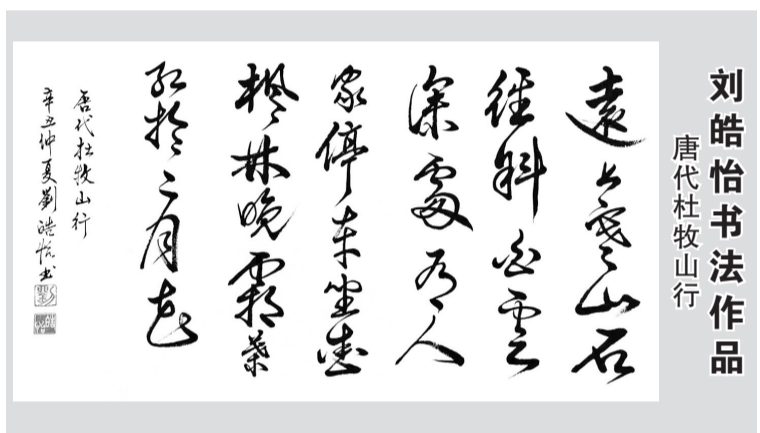 刘皓怡书法作品
唐代杜牧山行
遠上寒山石
徑斜白雲
深處有人
家停车坐愛
楓林晚霜葉
红於二月花
唐代杜牧山行
辛丑仲夏劉皓怡书
劉